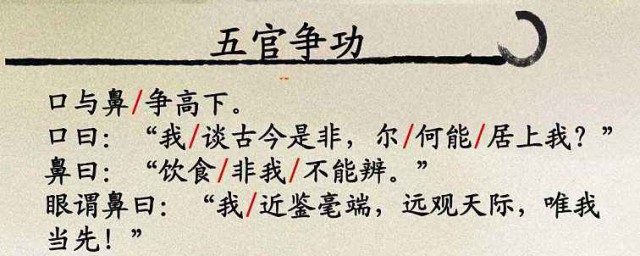 五官争功
口与鼻/争高下。
口曰：“我/谈古今是非，尔/何能/居上我？”
鼻曰：“饮食/非我/不能辨。”
眼谓鼻曰：“我/近鉴毫端，远观天际，唯我
当先！”